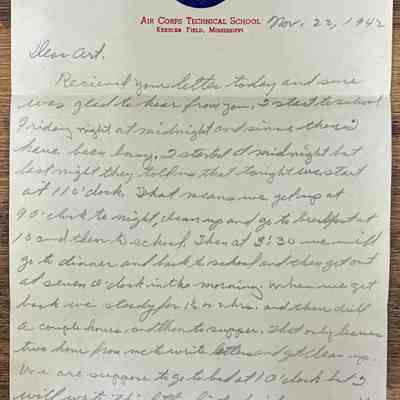 AIR CORPS TECHNICAL SCHOOL
KEESLER FIELD, MISSISSIPPI
Nov. 22, 1942
Dear Art.
Recieved your letter today and sure
was glad to hear from you. I start to school
Friday night at midnight and since then I
have been busy. I started at midnight but
last night they told us that tonight we start
at 11 o'clock. That means we get up at
9 o'clock to night, clean up and go to breakfast at
10 and then to school. Then at 3:30 we will
go to dinner and back to school and then get out
at seven o'clock in the morning. When we get
back we study for 1½ or 2 hrs. and then drill
a couple hours. and then to supper. That only leaves
two hours for me to write letters and get clean up.
We are suppose to go to bed at 1 o'clock but I
will write this letter